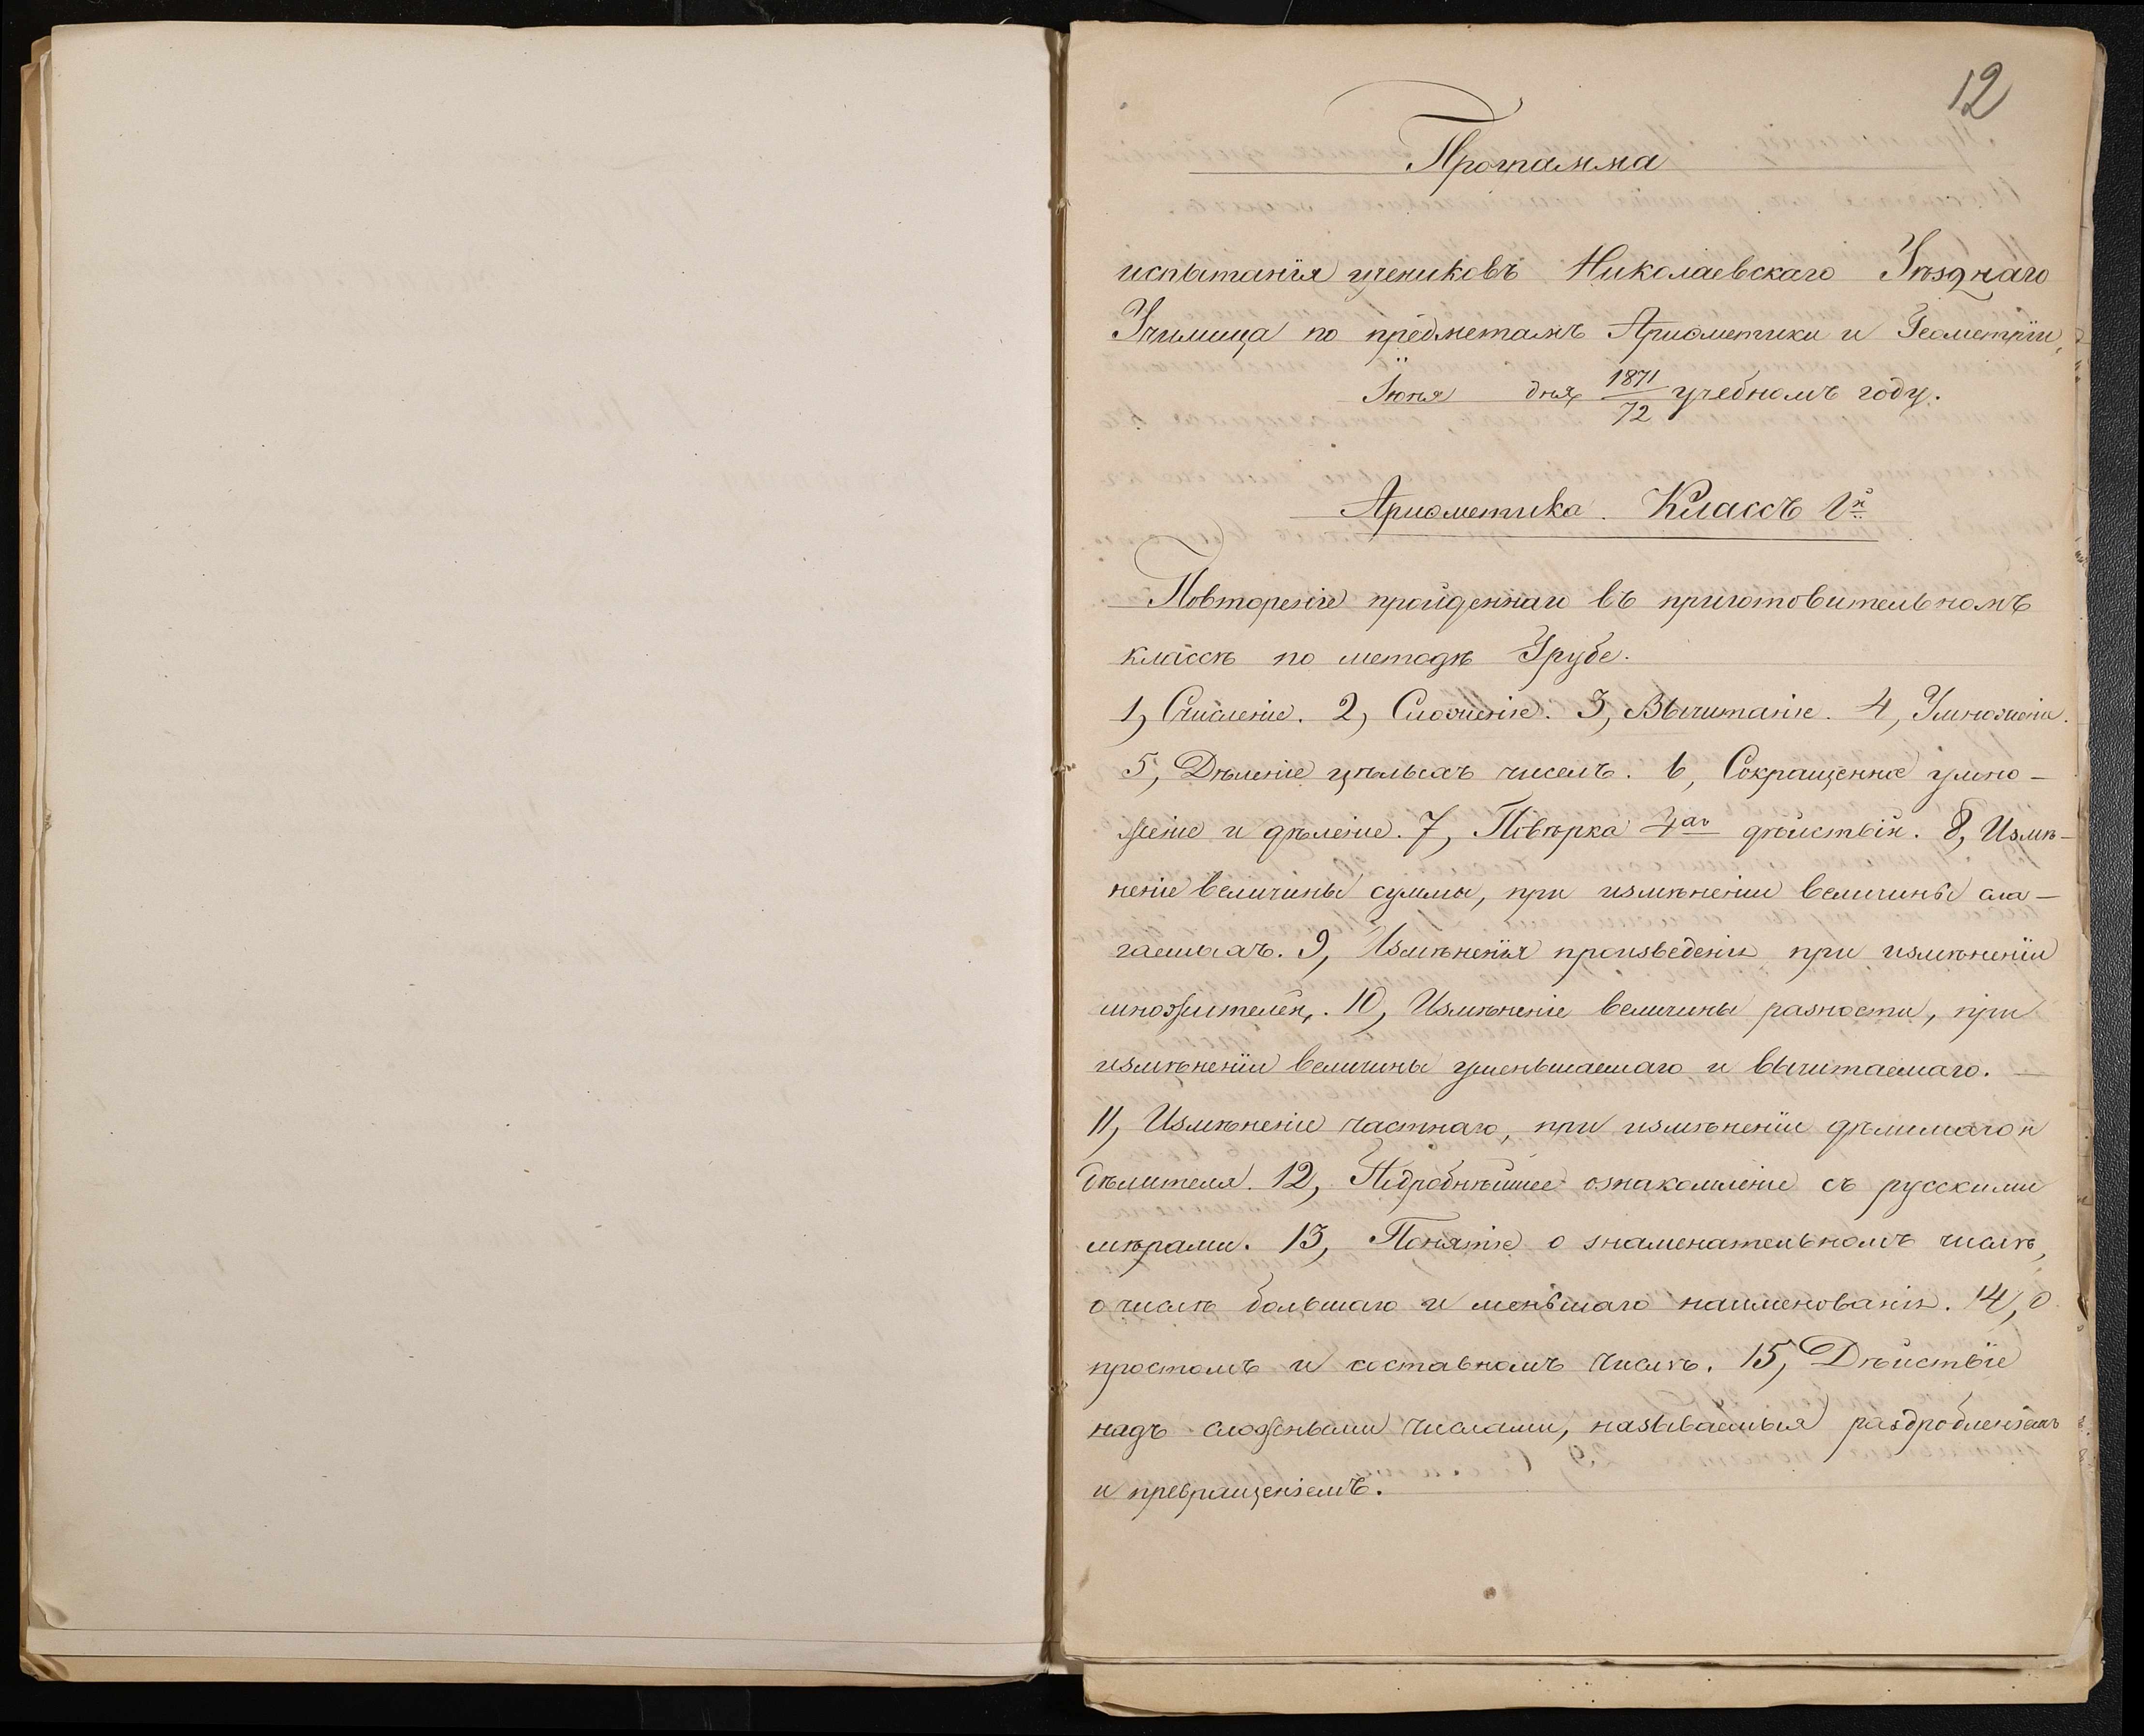 12
Программа
испытанія учениковъ Николаевскаго Уѣзднаго
Училища по предметамъ Ариѳметики и Геометріи,
Іюня дня 1871/72 учебномъ году.
Ариѳметика. Классъ 1й
Повтореніе пройденнаго въ приготовительномъ
классѣ по методѣ Грубе.
1, Счисленіе. 2, Сложеніе. 3, Вычитаніе. 4, Умноженіе.
5, Дѣленіе цѣлыхъ чиселъ. 6, Сокращенное умно-
женіе и дѣленіе. 7, Повѣрка 4хъ дѣйствій. 8, Измѣ-
неніе величины суммы, при измѣненіи величины сла-
гаемыхъ. 9, Измѣненія произведенія при измѣненіи
множителей. 10, Измѣненіе величины разности, при
измѣненіи величины уменьшаемаго и вычитаемаго.
11, Измѣненіе частнаго, при измѣненіи дѣлимаго и
дѣлителя. 12, Подробнѣйшее ознакомленіе съ русскими
мѣрами. 13, Понятіе о знаменательномъ числѣ,
о числѣ большаго и меньшаго наименованія. 14, О
простомъ и составномъ числѣ. 15, Дѣйствіе
надъ сложеными числами, называемыя раздробленіемъ
и превращеніемъ.